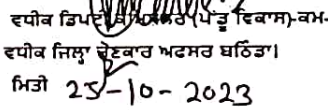 ਵਧੀਕ ਡਿਪਟੀ ਕਮਿਸ਼ਨਰ (ਪੇਂਡੂ ਵਿਕਾਸ)-ਕਮ-
ਵਧੀਕ ਜਿਲ੍ਹਾ ਚੋਣਕਾਰ ਅਫਸਰ ਬਠਿੰਡਾ।
ਮਿਤੀ 25-10-2023